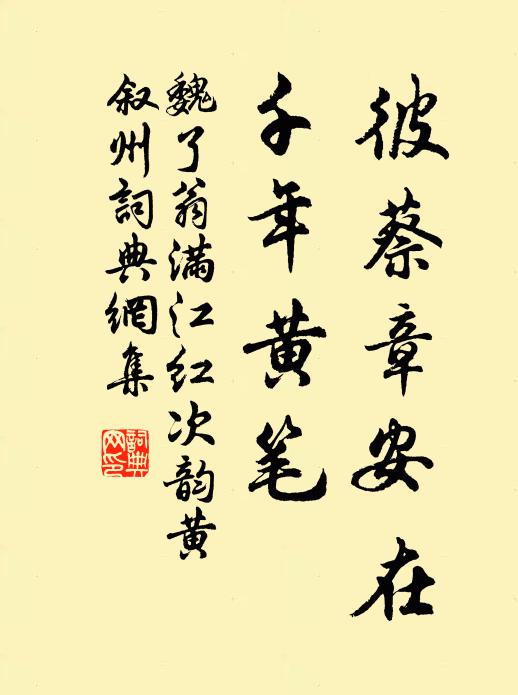 彼蔡章安在
千年黄笔
魏了翁满江红次韵黄
叙州詞典網集
詞典网印